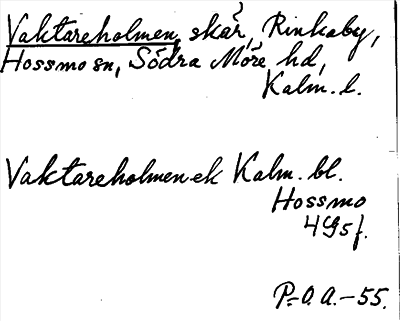 Vaktareholmen, skär, Rinkaby,
Hossmo sn, Södra Möre hd,
Kalm. l.
Vaktareholmen ek Kalm. bl.
Hossmo
4 9 5 f.
P.-O. A. - 55.